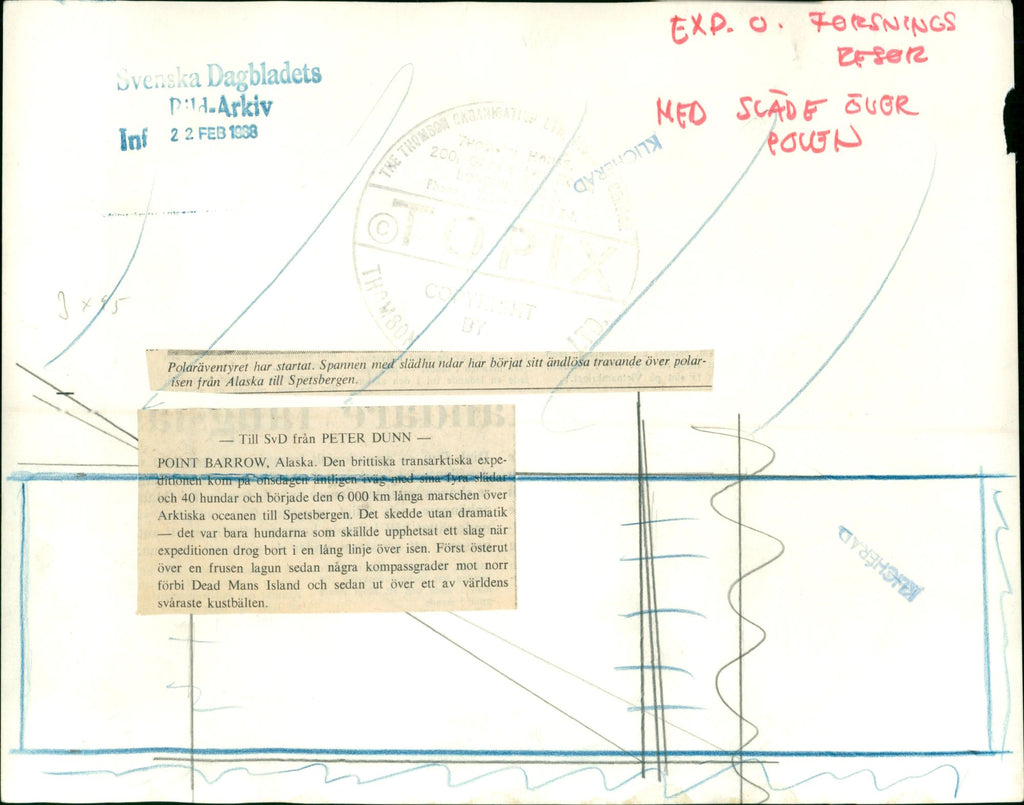 EXP. O. FORSNINGS
RESOR
MED SLÄDE ÖVER
POLEN
Svenska Dagbladets
Bild-Arkiv
Inf 22 FEB 1968
KLICHERAD
THE THOMSON ORGANISATION LTD.
© TOPIX
THOMSON
COPYRIGHT
BY
3 x 95
Polaräventyret har startat. Spannen med slädhu ndar har börjat sitt ändlösa travande över polar-
isen från Alaska till Spetsbergen.
— Till SvD från PETER DUNN —
POINT BARROW, Alaska. Den brittiska transarktiska expe-
ditionen kom på onsdagen äntligen iväg med sina fyra slädar
och 40 hundar och började den 6 000 km långa marschen över
Arktiska oceanen till Spetsbergen. Det skedde utan dramatik
— det var bara hundarna som skällde upphetsat ett slag när
expeditionen drog bort i en lång linje över isen. Först österut
över en frusen lagun sedan några kompassgrader mot norr
förbi Dead Mans Island och sedan ut över ett av världens
svåraste kustbälten.
KLICHERAD